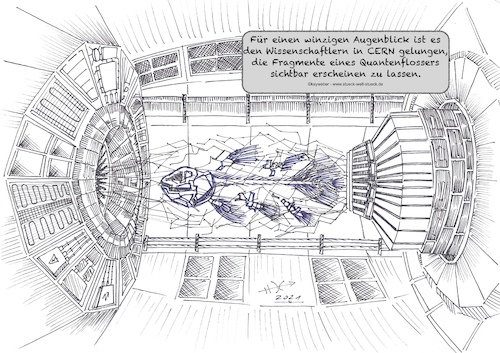 Für einen winzigen Augenblick ist es
den Wissenschaftlern in CERN gelungen,
die Fragmente eines Quantenflossers
sichtbar erscheinen zu lassen.
2021